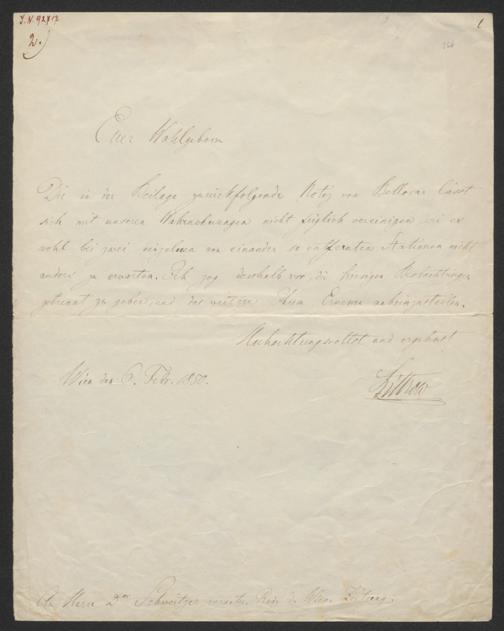 I.N. 92812
2.)
1
Euer Wohlgeborn
Die in der Beilage zurückfolgende Notiz von läßt
sich mit unseren Wahrnehmungen nicht füglich vereinigen wie es
wohl bei zwei einzelnen von einander so entfernten Stationen nicht
anders zu erwarten. Ich zog deßhalb vor, die hiesigen Beobachtungen
getrennt zu geben, und das weitere Ihrem Ermessen anheimzustellen.
Hochachtungsvollst und ergebenst
Wien den 6. Febr. 1850.
Littrow
An Herrn Dor Schweitzer Red. der Wien. Zeitung.